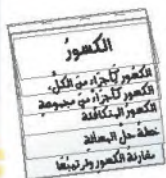 الكسورُ
الكسور كأجزاء من الكل.
الكسور كأجزاء من مجموعة
الكسور المتكافئة
خطة حل المسألة
مقارنة الكسور وترتيبها